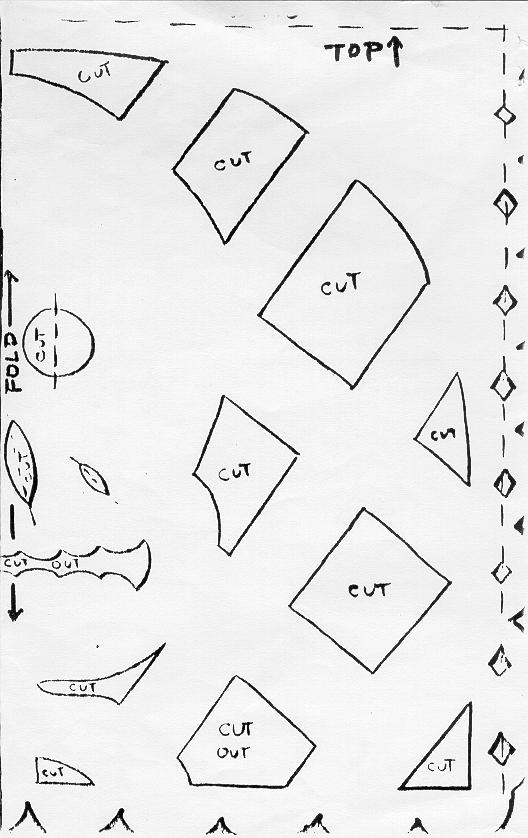 TOP
CUT
CUT
CUT
CUT
FOLD
CUT
CUT
CUT
CUT
CUT OUT
CUT
CUT
CUT
OUT
CUT
CUT